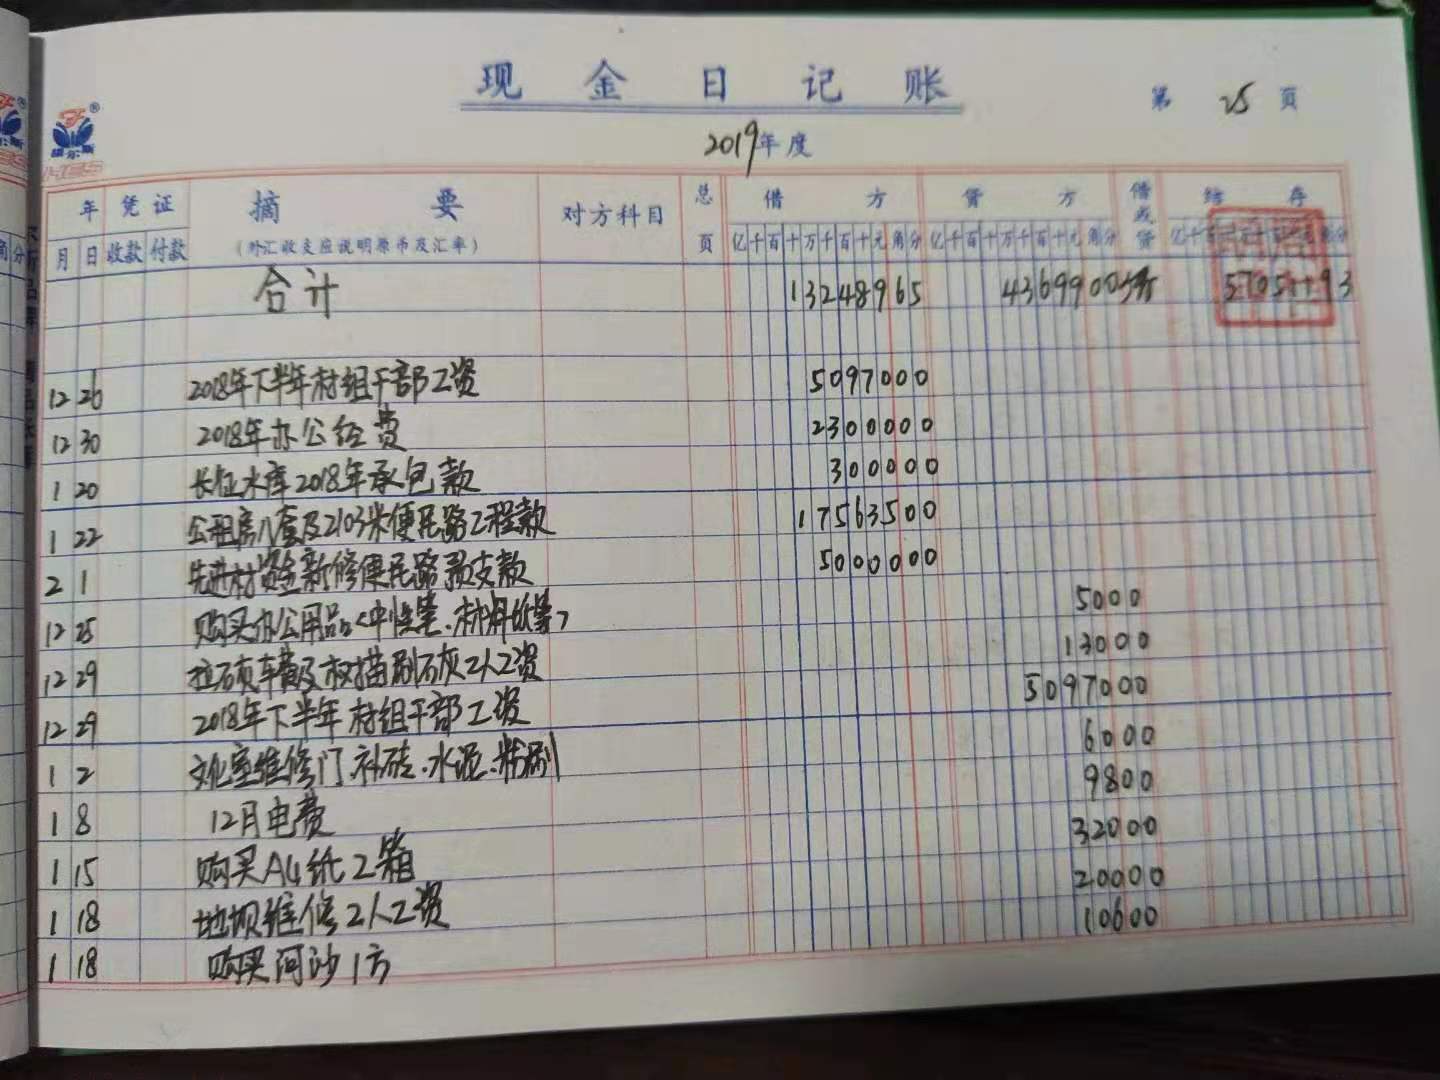 现金日记账
第 25 页
2019年度
年 凭证 摘要 对方科目 总页 借方 贷方 借或贷 结存
月 日 收款 付款 (外汇收支应说明原币及汇率) 亿千百十万千百十元角分 亿千百十万千百十元角分 亿千百十万千百十元角分
合计 13248965 4369900
12 26 2018年下半年村组干部工资 5097000
12 30 2018年办公经费 2300000
1 20 长征水库2018年承包款 300000
1 22 公租房八套及2103米便民路工程款 17563500
2 1 先进村资金新修便民路预支款 5000000
12 25 购买办公用品<中性笔、材料纸等> 5000
12 29 拉石灰车费及树苗刷石灰2人工资 13000
12 29 2018年下半年村组干部工资 5097000
1 2 文化室维修门、补砖、水泥、粉刷 6000
1 8 12月电费 9800
1 15 购买A4纸2箱 32000
1 18 地坝维修2人工资 20000
1 18 购买河沙1方 10600